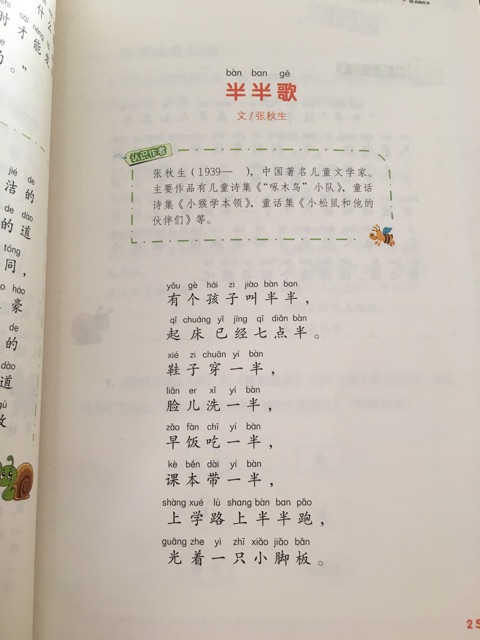 shí cái néng
时才能发
bàn ban gē
半半歌
文/张秋生
认识作者
张秋生(1939— ),中国著名儿童文学家。
主要作品有儿童诗集《“啄木鸟”小队》,童话
诗集《小猴学本领》,童话集《小松鼠和他的
伙伴们》等。
yǒu gè hái zi jiào bàn ban
有个孩子叫半半,
qǐ chuáng yǐ jīng qī diǎn bàn
起床已经七点半。
xié zi chuān yí bàn
鞋子穿一半,
liǎn er xǐ yí bàn
脸儿洗一半,
zǎo fàn chī yí bàn
早饭吃一半,
kè běn dài yí bàn
课本带一半,
shàng xué lù shang bàn ban pǎo
上学路上半半跑,
guāng zhe yì zhī xiǎo jiǎo bǎn
光着一只小脚板。
25
jié de
洁的
de dào
的道
tóng
同,
háo
豪
de
的
dào
道